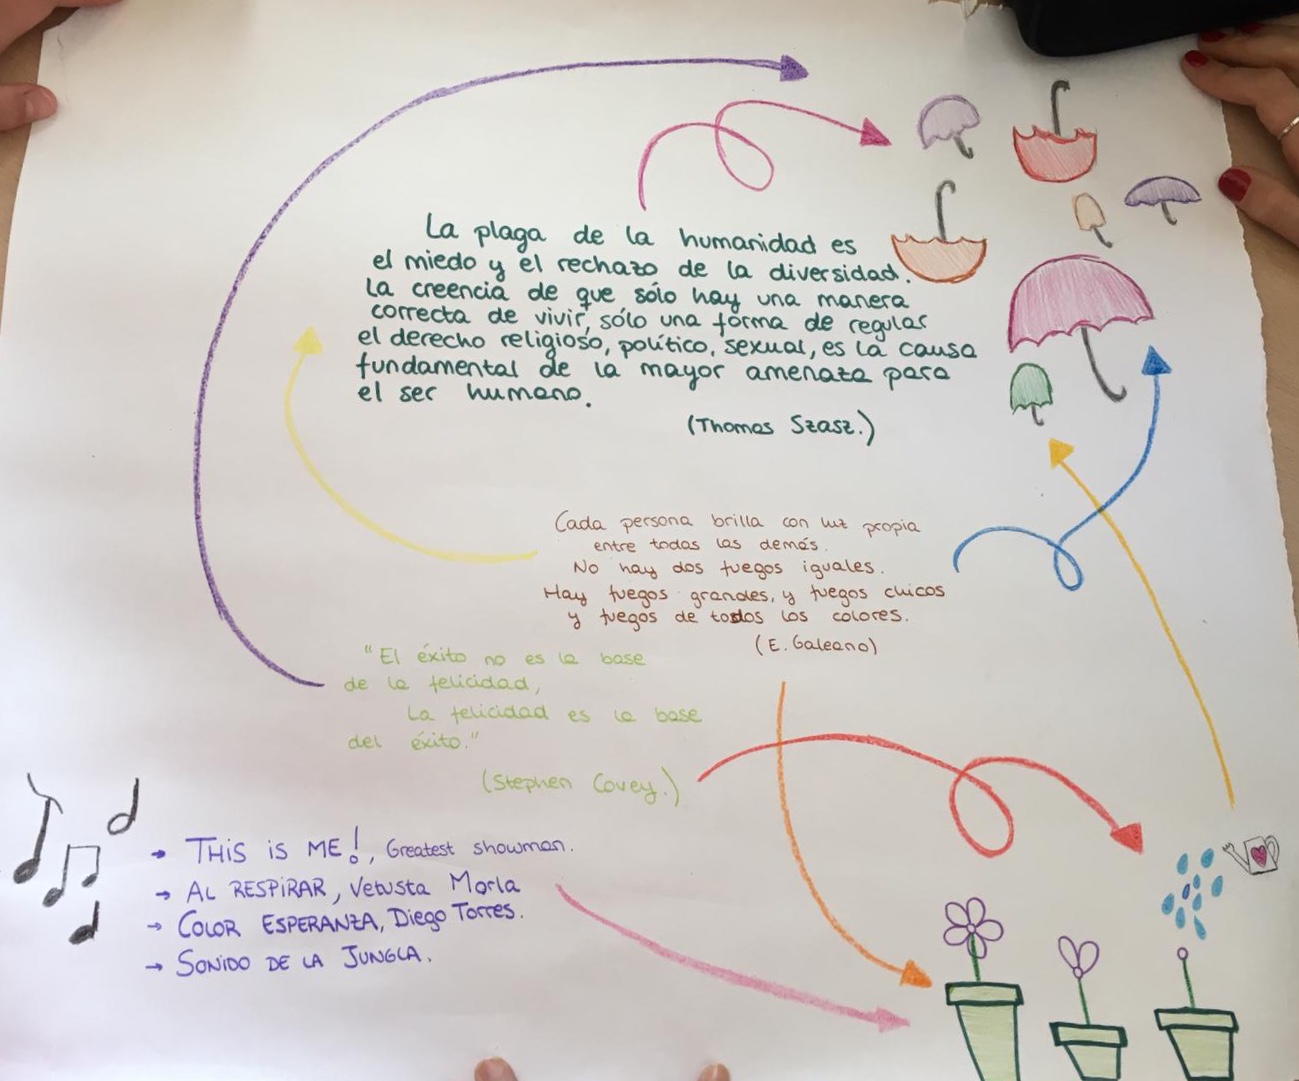 La plaga de la humanidad es
el miedo y el rechazo de la diversidad.
La creencia de que sólo hay una manera
correcta de vivir, sólo una forma de regular
el derecho religioso, político, sexual, es la causa
fundamental de la mayor amenaza para
el ser humano.
(Thomas Szasz.)
Cada persona brilla con luz propia
entre todas las demás.
No hay dos fuegos iguales.
Hay fuegos grandes, y fuegos chicos
y fuegos de todos los colores.
(E. Galeano)
"El éxito no es la base
de la felicidad,
La felicidad es la base
del éxito."
(Stephen Covey.)
→ THIS IS ME!, Greatest showman.
→ AL RESPIRAR, Vetusta Morla
→ COLOR ESPERANZA, Diego Torres.
→ SONIDO DE LA JUNGLA.